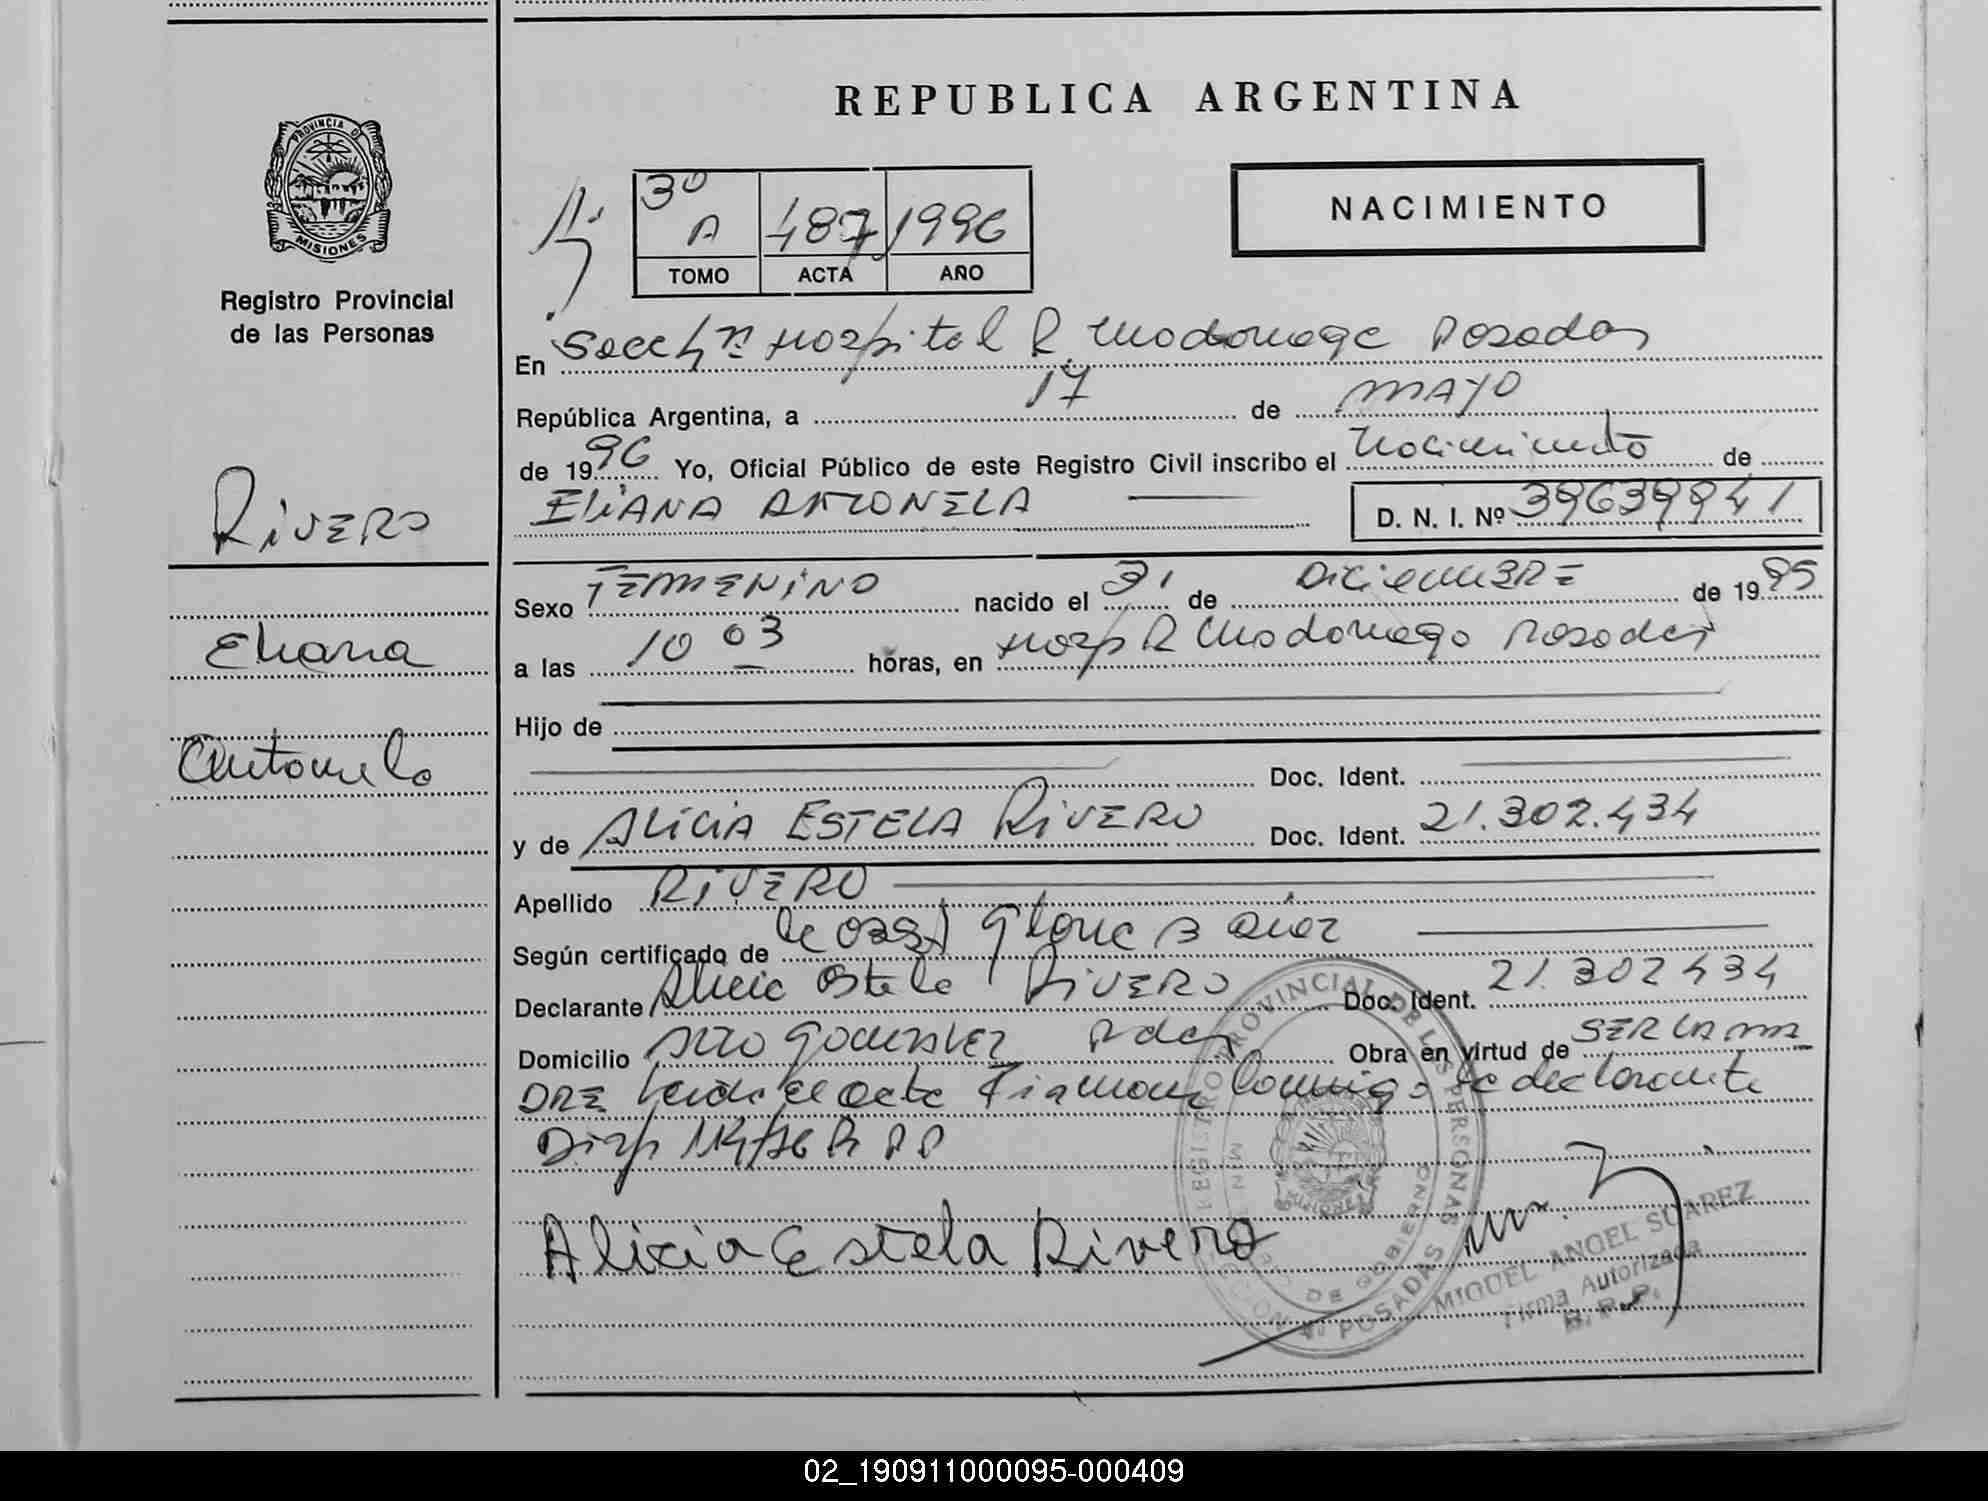 REPUBLICA ARGENTINA
PROVINCIA DE
MISIONES
Registro Provincial
de las Personas
3º
A 487 1996
TOMO ACTA AÑO
NACIMIENTO
En Secc Hospital R. Madariaga Posadas
República Argentina, a 17 de MAYO
de 1996 Yo, Oficial Público de este Registro Civil inscribo el Nacimiento de
RIVERO
ELIANA ANTONELA D. N. I. Nº 39639941
Sexo FEMENINO nacido el 31 de DICIEMBRE de 1995
Eliana
a las 10 03 horas, en Hosp R Madariaga Posadas
Hijo de
Antonela
Doc. Ident.
y de ALICIA ESTELA RIVERO Doc. Ident. 21.302.434
Apellido RIVERO
Según certificado de la Obst
Declarante Alicia Estela RIVERO Doc. Ident. 21.302434
Domicilio Gonzalez Pdas Obra en virtud de SER LA MA
DRE Leida el acta Firman Conmigo la declarante
Disp
Alicia Estela Rivero
REGISTRO PROVINCIAL DE LAS PERSONAS
DE GOBIERNO
POSADAS
MIGUEL ANGEL SUAREZ
Firma Autorizada
R. P. P.
02_190911000095-000409